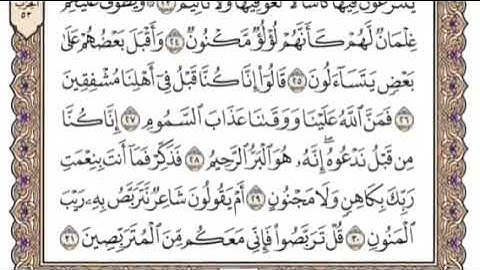 يَتَنَٰزَعُونَ فِيهَا كَأْسًا لَّا لَغْوٌ فِيهَا وَلَا تَأْثِيمٌ ٢٣ وَيَطُوفُ عَلَيْهِمْ
غِلْمَانٌ لَّهُمْ كَأَنَّهُمْ لُؤْلُؤٌ مَّكْنُونٌ ٢٤ وَأَقْبَلَ بَعْضُهُمْ عَلَىٰ
بَعْضٍ يَتَسَآءَلُونَ ٢٥ قَالُوٓا۟ إِنَّا كُنَّا قَبْلُ فِىٓ أَهْلِنَا مُشْفِقِينَ
٢٦ فَمَنَّ ٱللَّهُ عَلَيْنَا وَوَقَىٰنَا عَذَابَ ٱلسَّمُومِ ٢٧ إِنَّا كُنَّا
مِن قَبْلُ نَدْعُوهُ إِنَّهُۥ هُوَ ٱلْبَرُّ ٱلرَّحِيمُ ٢٨ فَذَكِّرْ فَمَآ أَنتَ بِنِعْمَتِ
رَبِّكَ بِكَاهِنٍ وَلَا مَجْنُونٍ ٢٩ أَمْ يَقُولُونَ شَاعِرٌ نَّتَرَبَّصُ بِهِۦ رَيْبَ
ٱلْمَنُونِ ٣٠ قُلْ تَرَبَّصُوا۟ فَإِنِّى مَعَكُم مِّنَ ٱلْمُتَرَبِّصِينَ ٣١
الحزب
٥٣